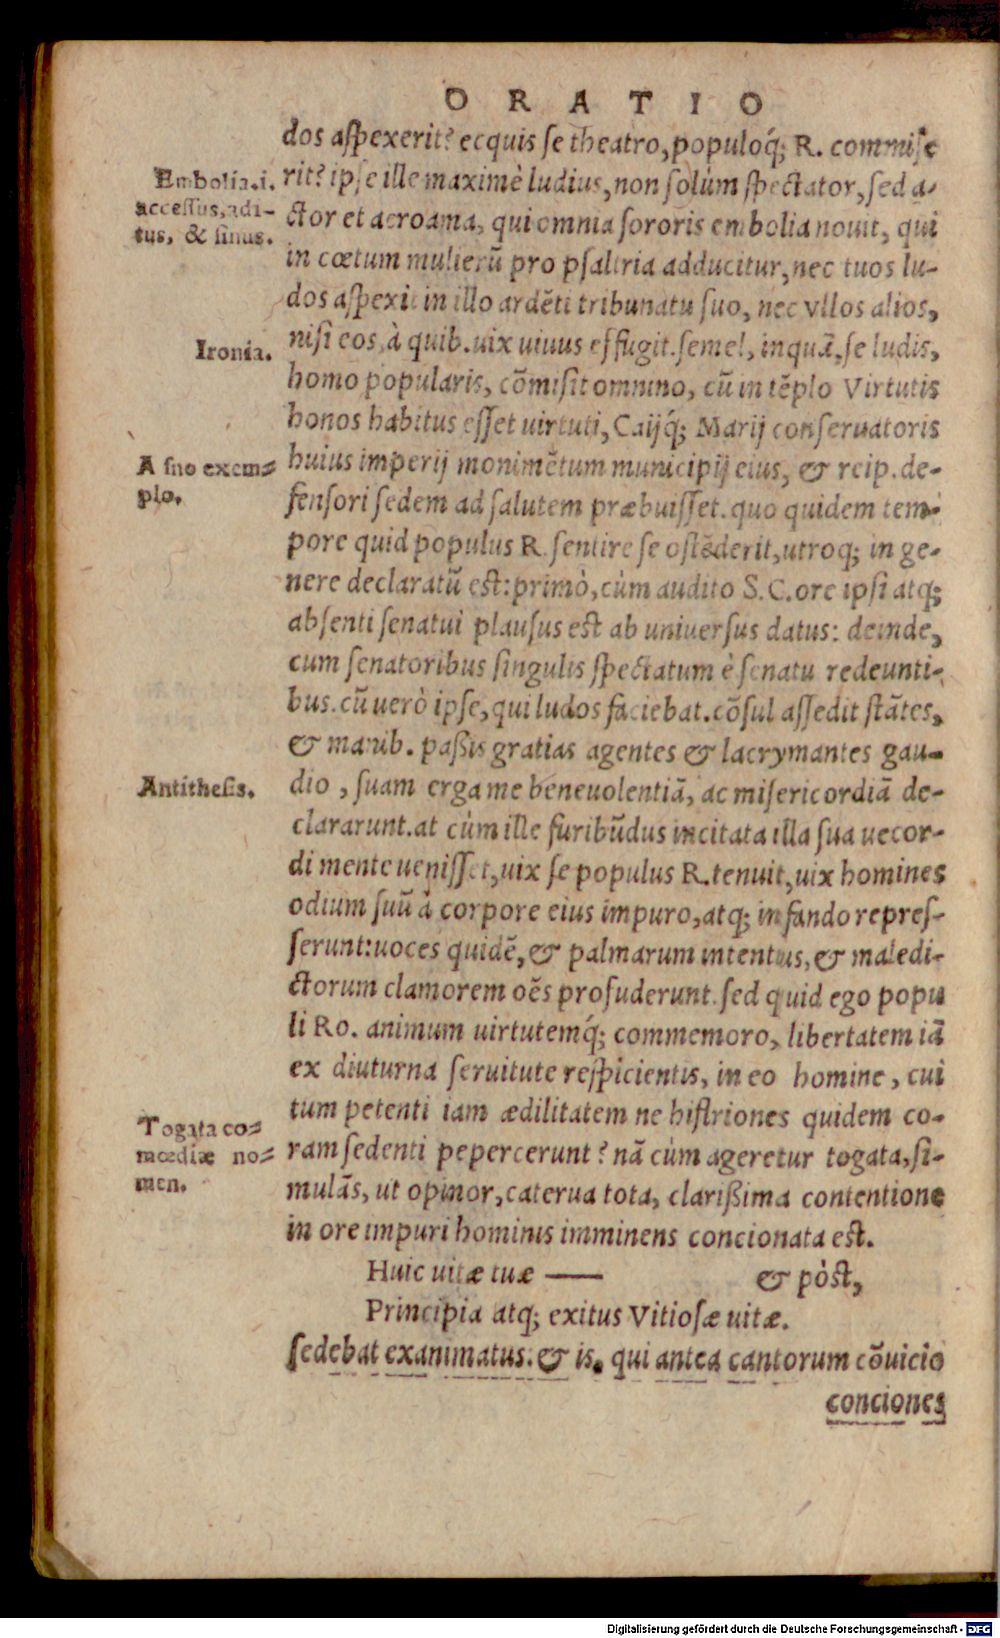 ORATIO
dos aſpexerit? ecquis ſe theatro, populoq́; R. commiſe
Embolia.i. rit? ipſe ille maximè ludius, non ſolùm ſpectator, ſed a-
acceſſus, adi- ctor et acroama, qui omnia ſororis embolia nouit, qui
tus, & ſinus. in cœtum mulierū pro pſaltria adducitur, nec tuos lu-
dos aſpexit in illo ardēti tribunatu ſuo, nec vllos alios,
Ironia. niſi eos, à quib. uix uiuus effugit. ſemel, inquā, ſe ludis,
homo popularis, cōmiſit omnino, cū in tēplo Virtutis
honos habitus eſſet uirtuti, Caijq́; Marij conſeruatoris
A ſuo exem- huius imperij monimētum municipij eius, & reip. de-
plo. fenſori ſedem ad ſalutem præbuiſſet. quo quidem tem-
pore quid populus R. ſentire ſe oſtēderit, utroq; in ge-
nere declaratū eſt: primò, cùm audito S.C. ore ipſi atq;
abſenti ſenatui plauſus eſt ab uniuerſus datus: deinde,
cum ſenatoribus ſingulis ſpectatum è ſenatu redeunti-
bus. cū uerò ipſe, qui ludos faciebat. cōſul aſſedit ſtātes,
& manib. paßis gratias agentes & lacrymantes gau-
Antitheſis. dio, ſuam erga me beneuolentiā, ac miſericordiā de-
clararunt. at cùm ille furibūdus incitata illa ſua uecor-
di mente ueniſſet, uix ſe populus R. tenuit, uix homines
odium ſuū à corpore eius impuro, atq; infando repreſ-
ſerunt: uoces quidē, & palmarum intentus, & maledi-
ctorum clamorem oēs profuderunt. ſed quid ego popu
li Ro. animum uirtutemq́; commemoro, libertatem iā
ex diuturna ſeruitute reſpicientis, in eo homine, cui
tum petenti iam ædilitatem ne hiſtriones quidem co-
Togata co- ram ſedenti pepercerunt? nā cùm ageretur togata, ſi-
mœdiæ no- mulās, ut opinor, caterua tota, clarißima contentione
men. in ore impuri hominis imminens concionata eſt.
Huic uitæ tuæ —— & pòſt,
Principia atq; exitus Vitioſæ uitæ.
ſedebat exanimatus: & is, qui antea cantorum cōuicio
conciones
Digitalisierung gefördert durch die Deutsche Forschungsgemeinschaft - DFG